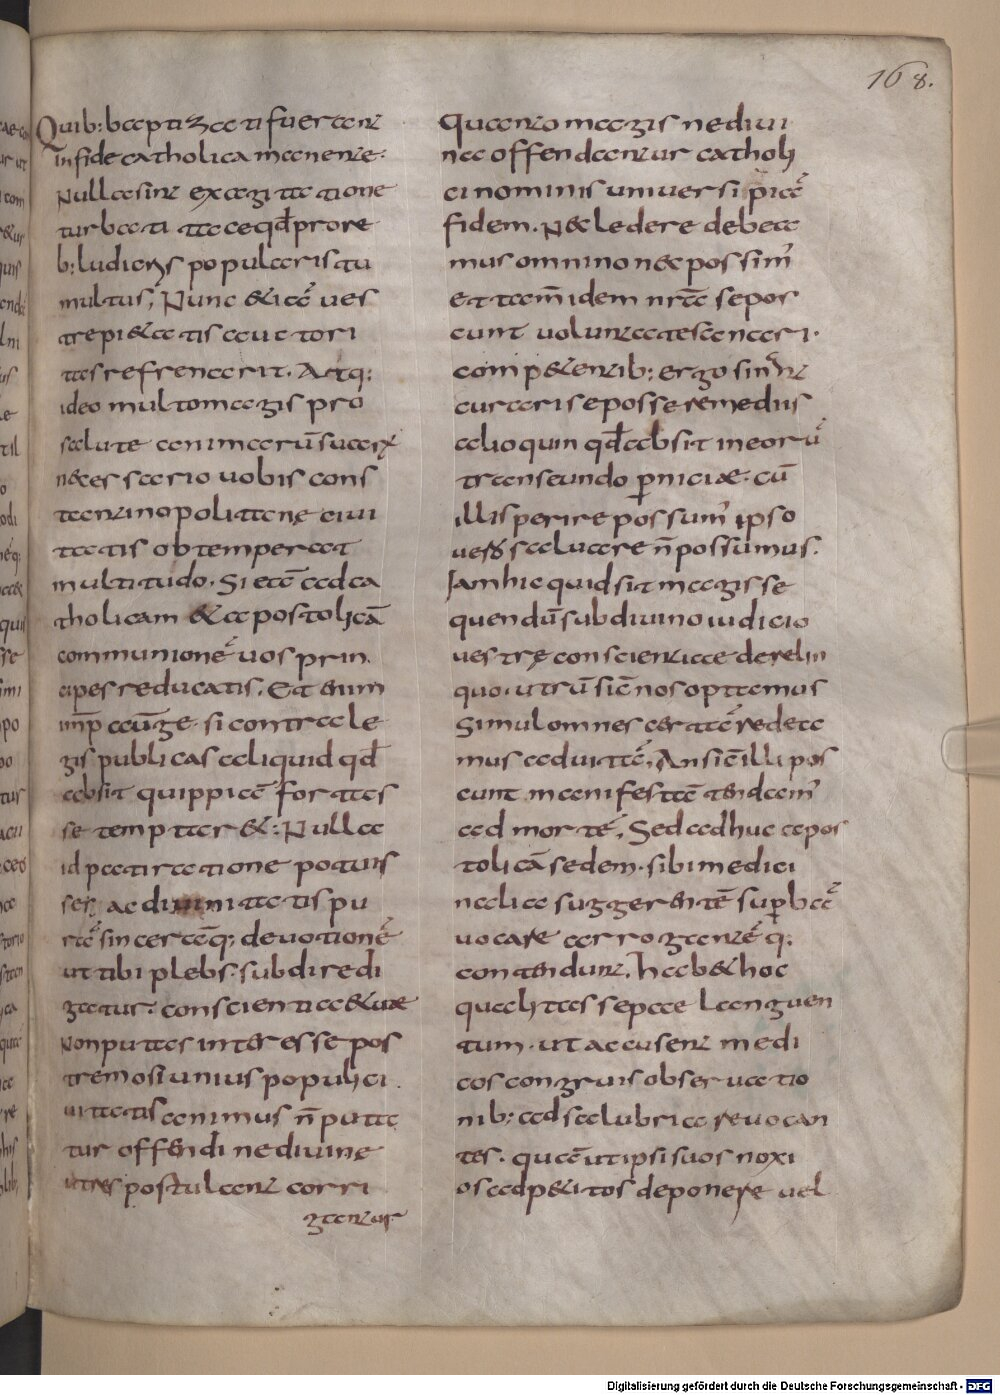 168.
Quib: baptizati fuerant
in fide catholica manente·
Nulla sint exagitatione
turbati ita ceqđ prore
b: ludicris popularis tu
multus; Nunc &iā ues
tre pi&atis auctori
tas refrenarit. Atq:
ideo multo magis pro
salute animarū suarū
necessario uobis cons
tantinopolitane ciui
tatis obtemperat
multitudo. Si etā ad ca
tholicam & apostolicā
communionē uos prin
cipes reducatis. Et enim
imp̄ auḡe· si contra le
gis publicas aliquid qđ
absit quippiā fortas
se temptar&; Nulla
id pati ratione potuis
ses ac diuinitatis pu
rā sincerāq; deuotionē
ut tibi plebs subdi redi
gatur· conscientia &uae
Non putas interesse pos
tremo si unius populi ci
uitatis animus n̄ puta
tur offendi ne diuine
ut res postulant corri
gantur
Quanto magis ne diui
na offendantur catholi
ci nominis uniuersi piā
fidem. Nec ledere debea
mus omnino nec possim'
Et tam̄ idem nr̄ā sepos
cunt uoluntatē sanari·
Conpetentib: ergo sinant
curari se posse remediis
alioquin qđ absit in eorū
transeundo perniciae· cū
illis perire possum' ipso
uero saluare n̄ possumus.
Iam hic quid sit magis se
quendū sub diuino iudicio
uestrę conscientiae derelin
quo· utrū sic nos optamus
Simul omnes certā redea
mus ad uitā, An sic illi pos
cunt manifestā tendam'
ad mortē. Sed adhuc apos
tolicā sedem· sibi medici
nalia suggerentē superbā
uocare arrogantēq:
contendunt. hab& hoc
qualitas sepae languen
tum· ut accusent medi
cos congruis obseruatio
nib: ad salubria reuocan
tes. quā ut ipsi suos noxi
os adp&itos deponere uel
Digitalisierung gefördert durch die Deutsche Forschungsgemeinschaft - DFG